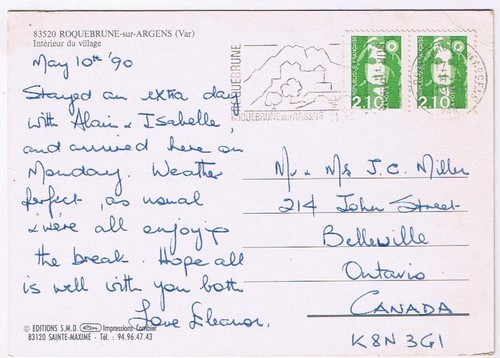 83520 ROQUEBRUNE-sur-ARGENS (Var)
Intérieur du village
May 10th '90
Stayed an extra day
with Alain & Isabelle,
and arrived here on
Monday. Weather
perfect, as usual
& we're all enjoying
the break. Hope all
is well with you both
Love Eleanor.
© EDITIONS S.M.D. Impressions Combier
83120 SAINTE-MAXIME - Tél. : 94.96.47.43
ROQUEBRUNE
ROQUEBRUNE sur ARGENS
2,10
2,10
Mr & Ms J.C. Miller
214 John Street
Belleville
Ontario
CANADA
K8N 3G1